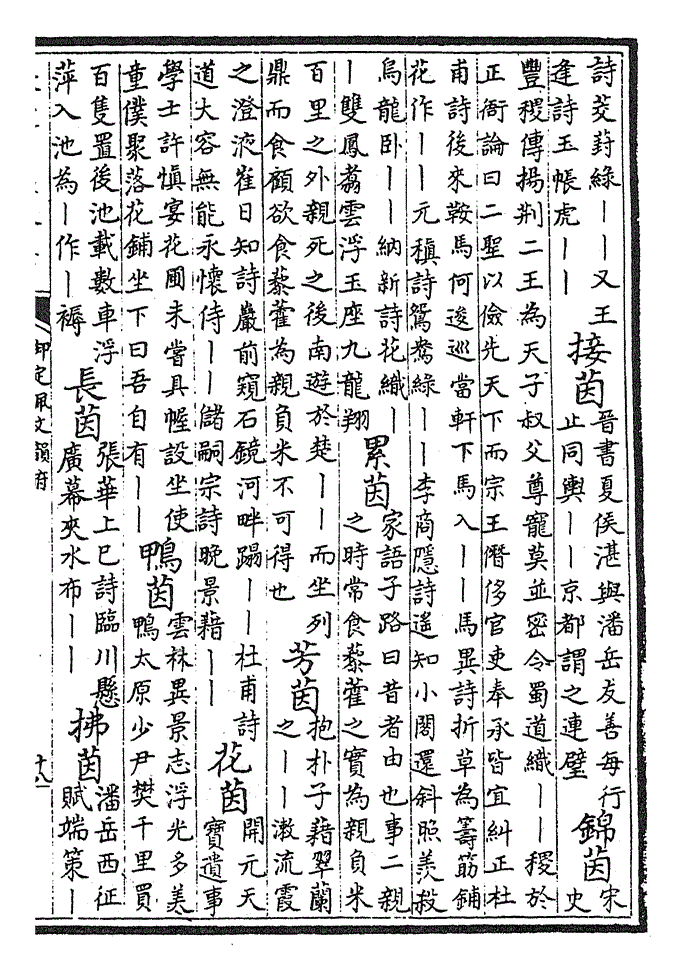 詩茭葑綠丨丨又王
逢詩玉帳虎丨丨
接茵
晉書夏侯湛與潘岳友善每行
止同輿丨丨京都謂之連璧
錦茵
宋
史
豐稷傳揚荆二王為天子叔父尊寵莫並密令蜀道織丨丨稷於
正衙論曰二聖以儉先天下而宗王僭侈官吏奉承皆宜糾正杜
甫詩後來鞍馬何逡巡當軒下馬入丨丨馬異詩折草為籌筯鋪
花作丨丨元稹詩鴛鴦綠丨丨李商隱詩遙知小閣還斜照羨殺
烏龍卧丨丨納新詩花織丨
丨雙鳳翥雲浮玉座九龍翔
累茵
家語子路曰昔者由也事二親
之時常食藜藿之實為親負米
百里之外親死之後南遊於楚丨丨而坐列
鼎而食願欲食藜藿為親負米不可得也
芳茵
抱朴子藉翠蘭
之丨丨漱流霞
之澄液崔日知詩巖前窺石鏡河畔蹋丨丨杜甫詩
道大容無能永懷侍丨丨儲嗣宗詩晚景藉丨丨
花茵
開元天
寶遺事
學士許慎宴花圃未嘗具幄設坐使
童僕聚落花鋪坐下曰吾自有丨丨
鴨茵
雲林異景志浮光多美
鴨太原少尹樊千里買
百隻置後池載數車浮
萍入池為丨作丨褥
長茵
張華上巳詩臨川懸
廣幕夾水布丨丨
拂茵
潘岳西征
賦端策丨
御定佩文韻府